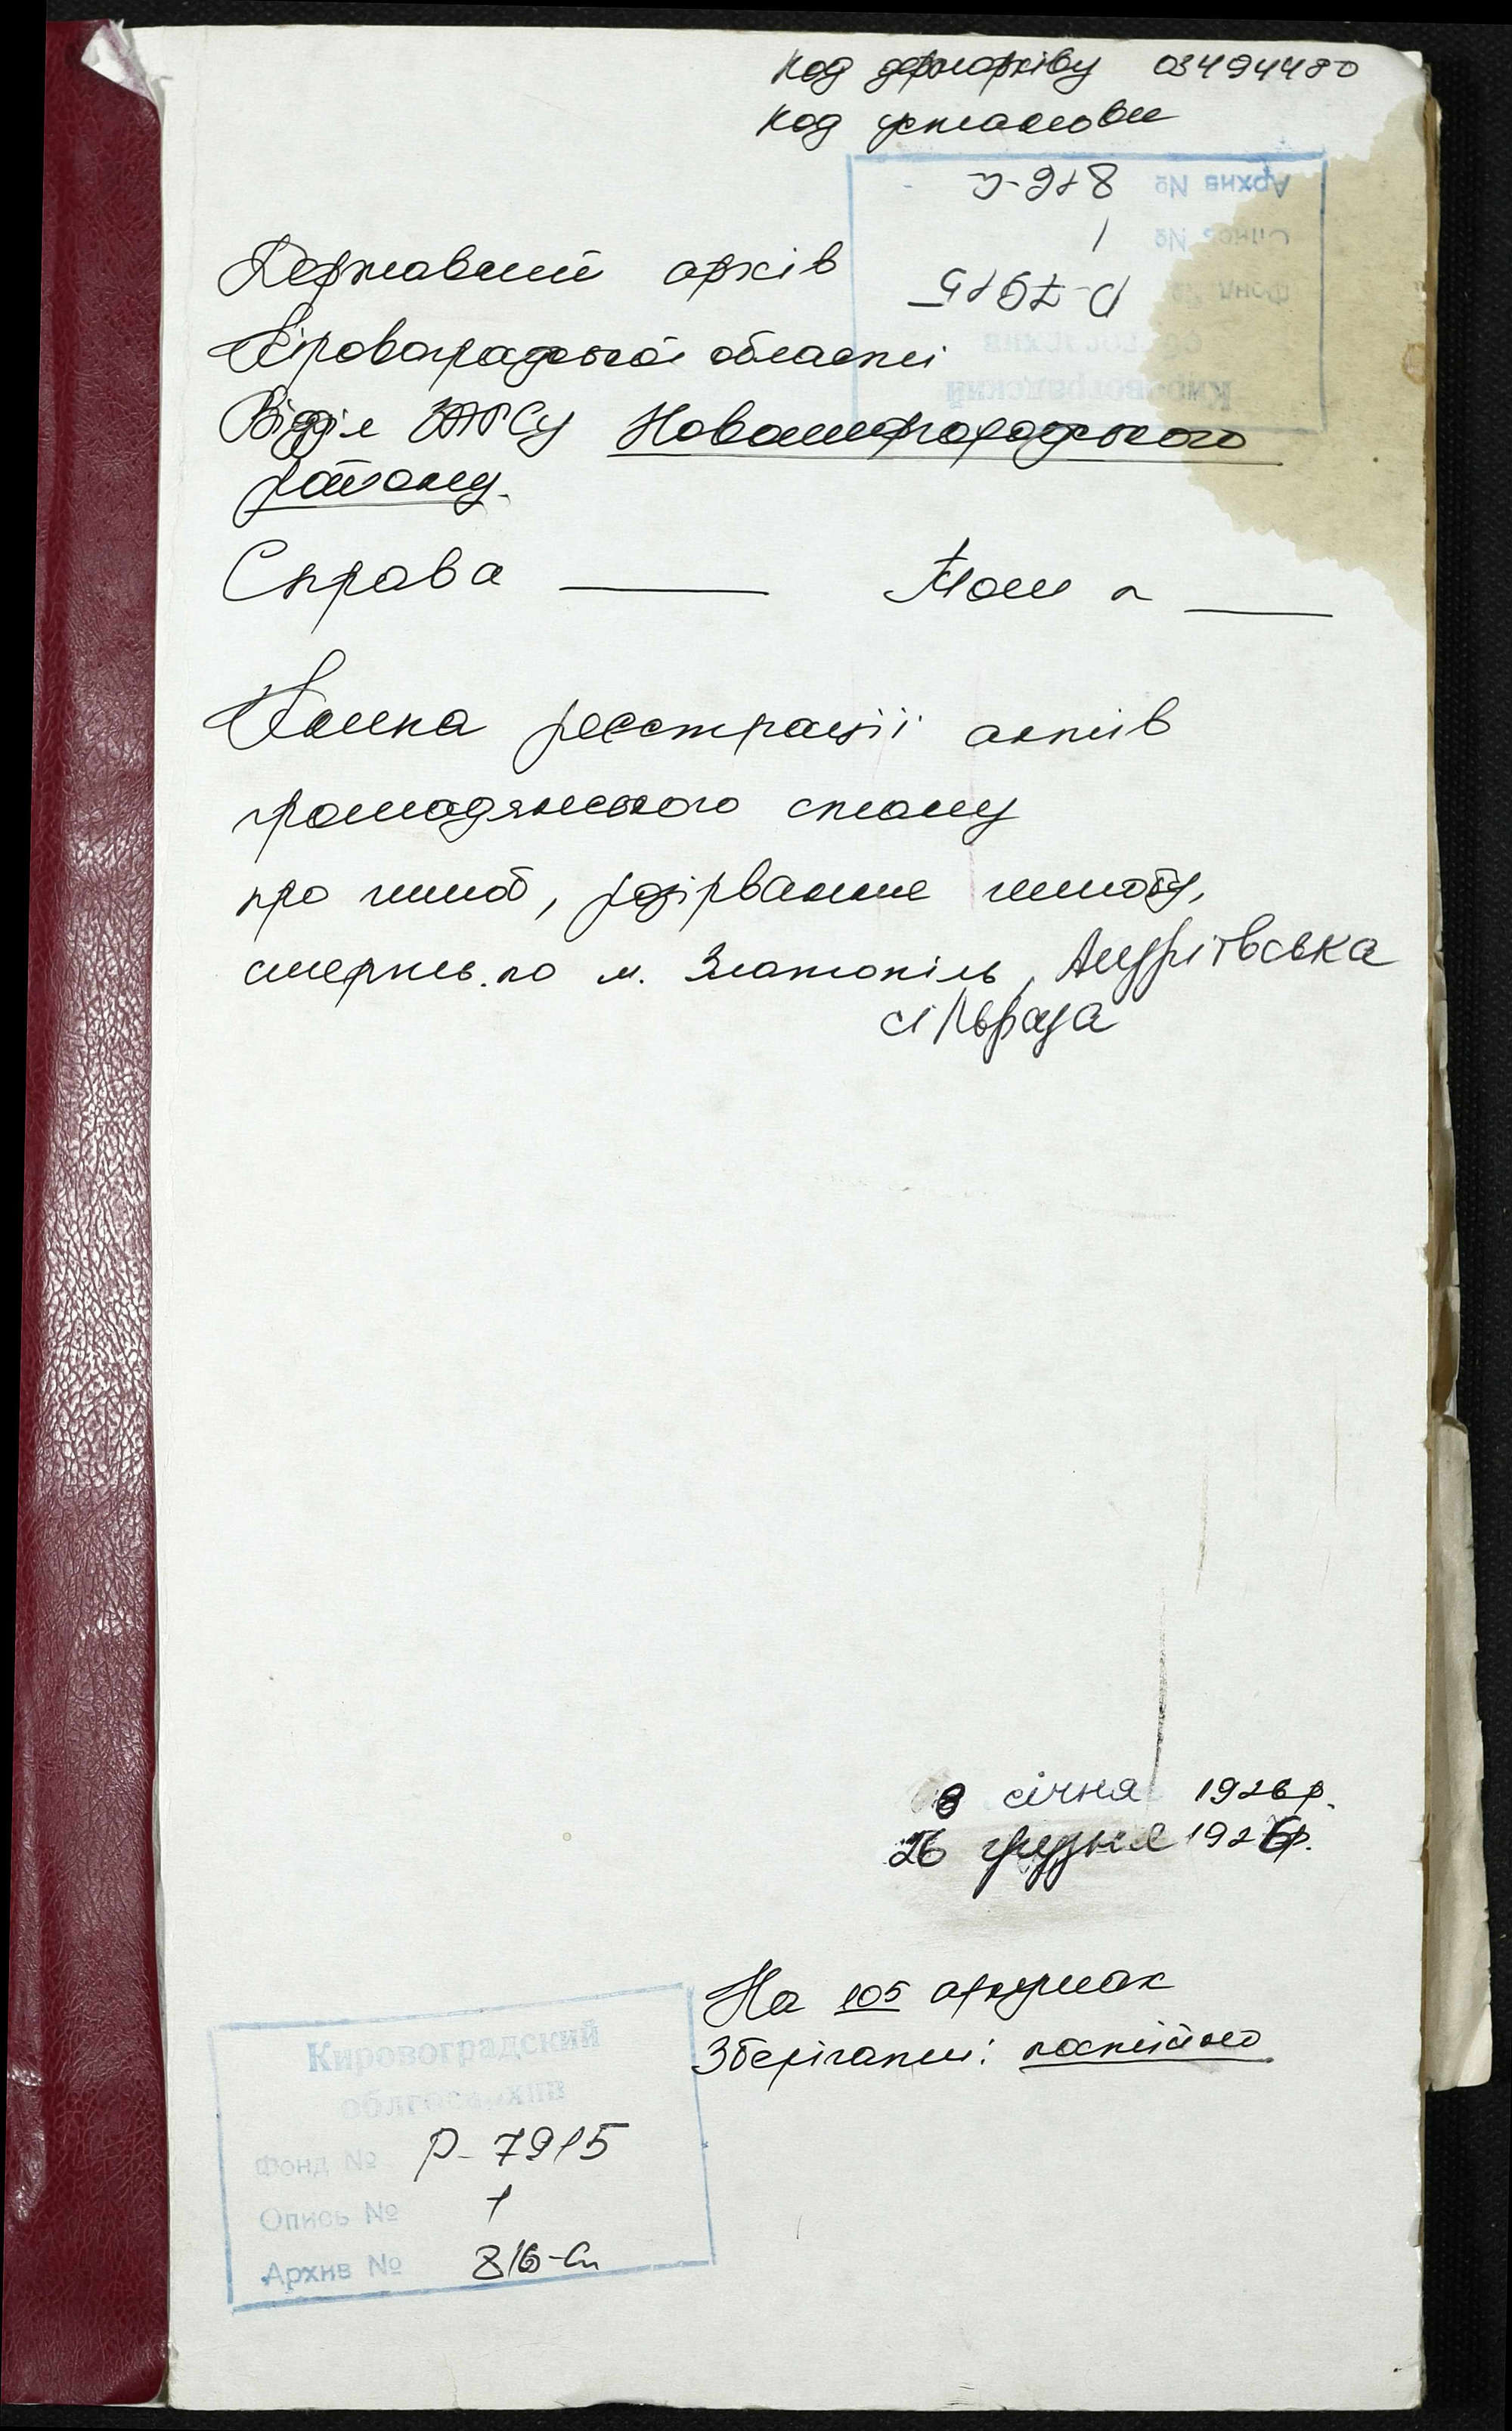 Код держархіву 03494480
Код установи
Архив № 816-с
Опись № 1
Фонд № Р-7915
облгосархив
Кировоградский
Державний архів
Кіровоградської області
Відділ ЗАГСу Новомиргородського
району.
Справа Том
Книга реєстрації актів
громадянського стану
про шлюб, розірвання шлюбу,
смерть. по м. Златопіль, Андріївська
сільрада
8 січня 1926 р.
26 грудня 1926р.
На 105 аркушах
Зберігати: постійно
Кировоградский
облгосархив
Фонд № Р-7915
Опись № 1
Архив № 816-